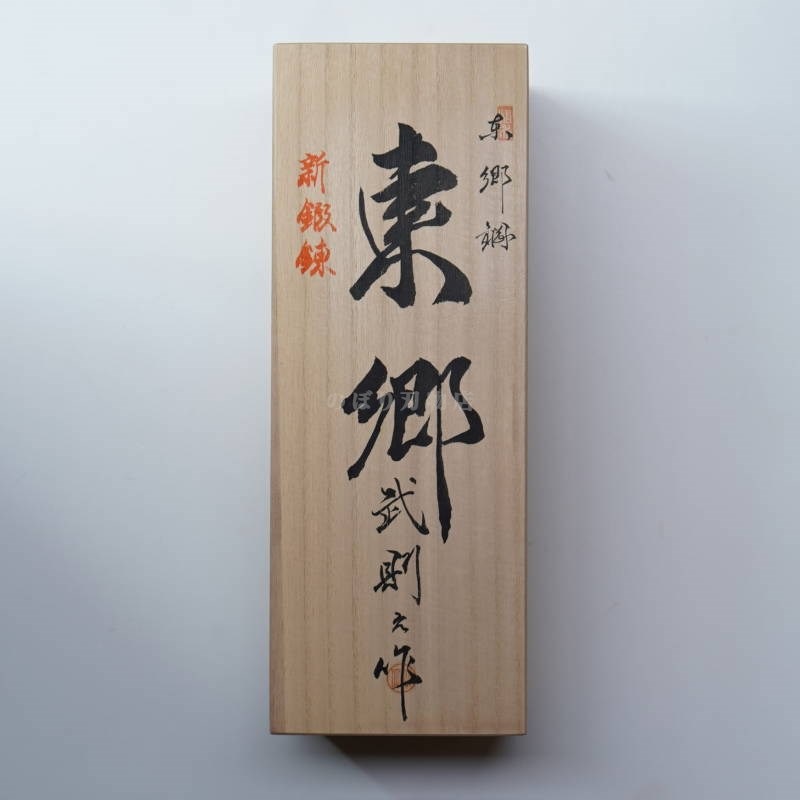 東郷鋼
東郷
武則之作
新鍛錬
のぼり刃物店